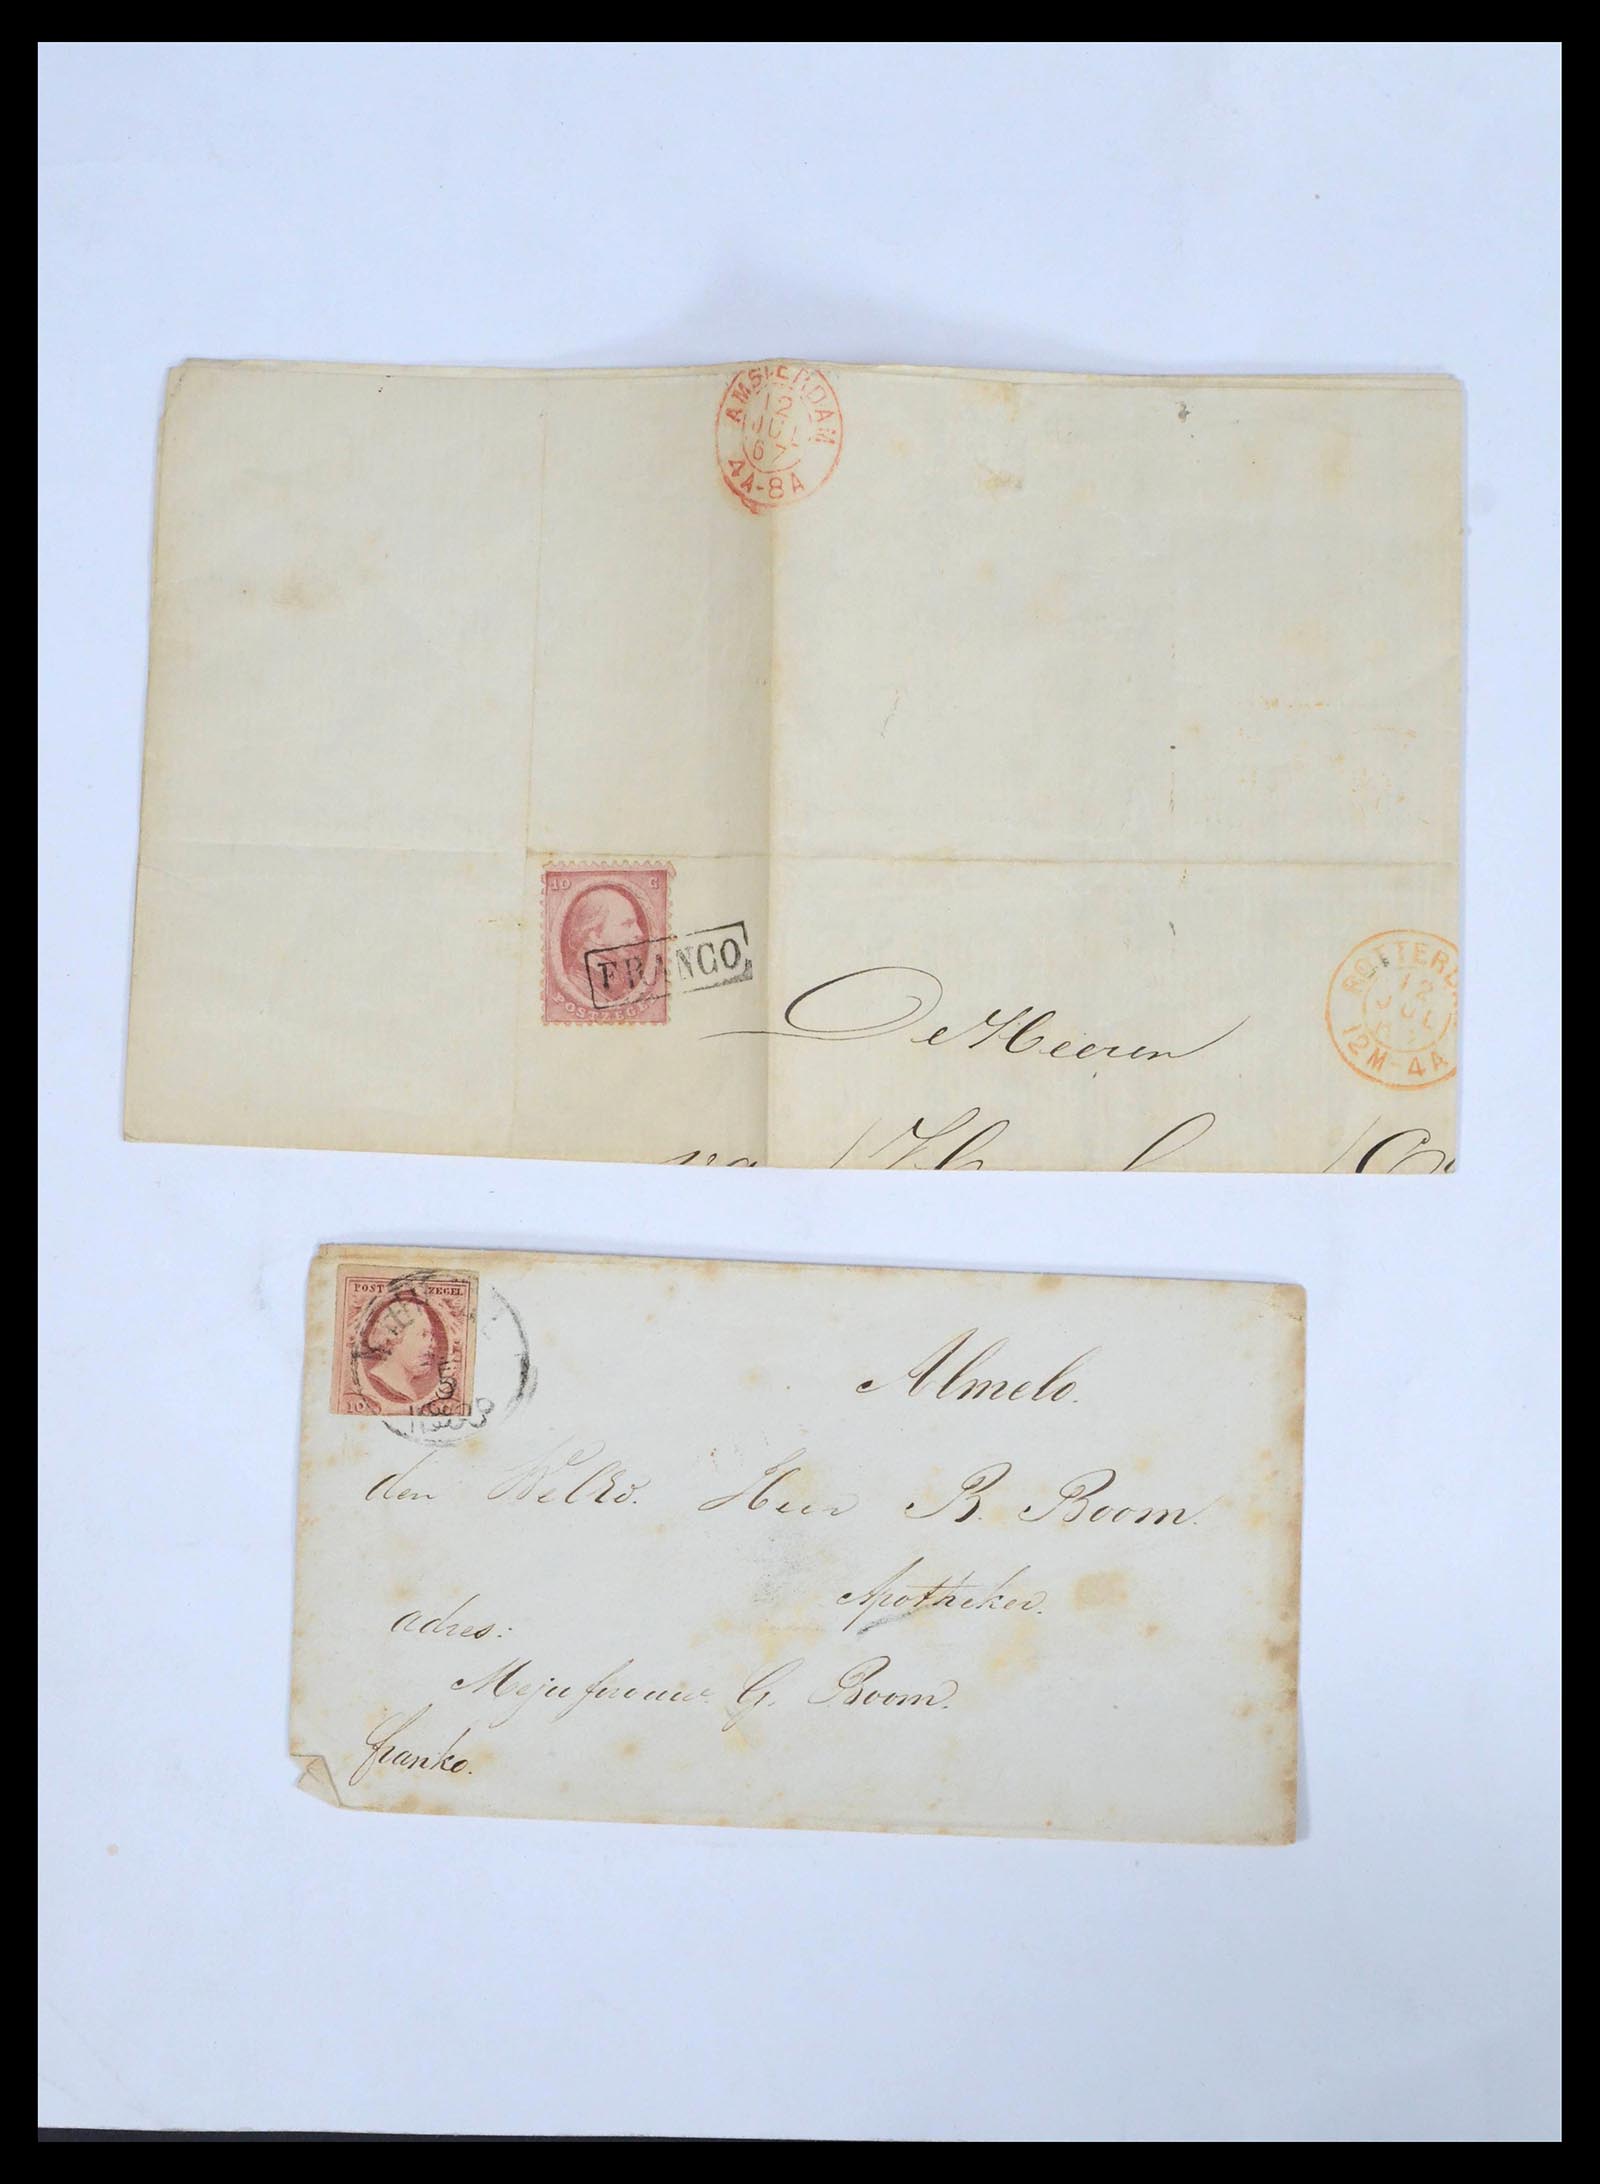 AMSTERDAM
12
JUL
67
4A-8A
10 C
POSTZEGEL
FRANCO
ROTTERD
12
JUL
12M-4A
De Heeren
POST ZEGEL
10
Almelo.
den Heer B. Boom.
Apotheker.
adres:
Mejufvrouw G. Boom.
franko.